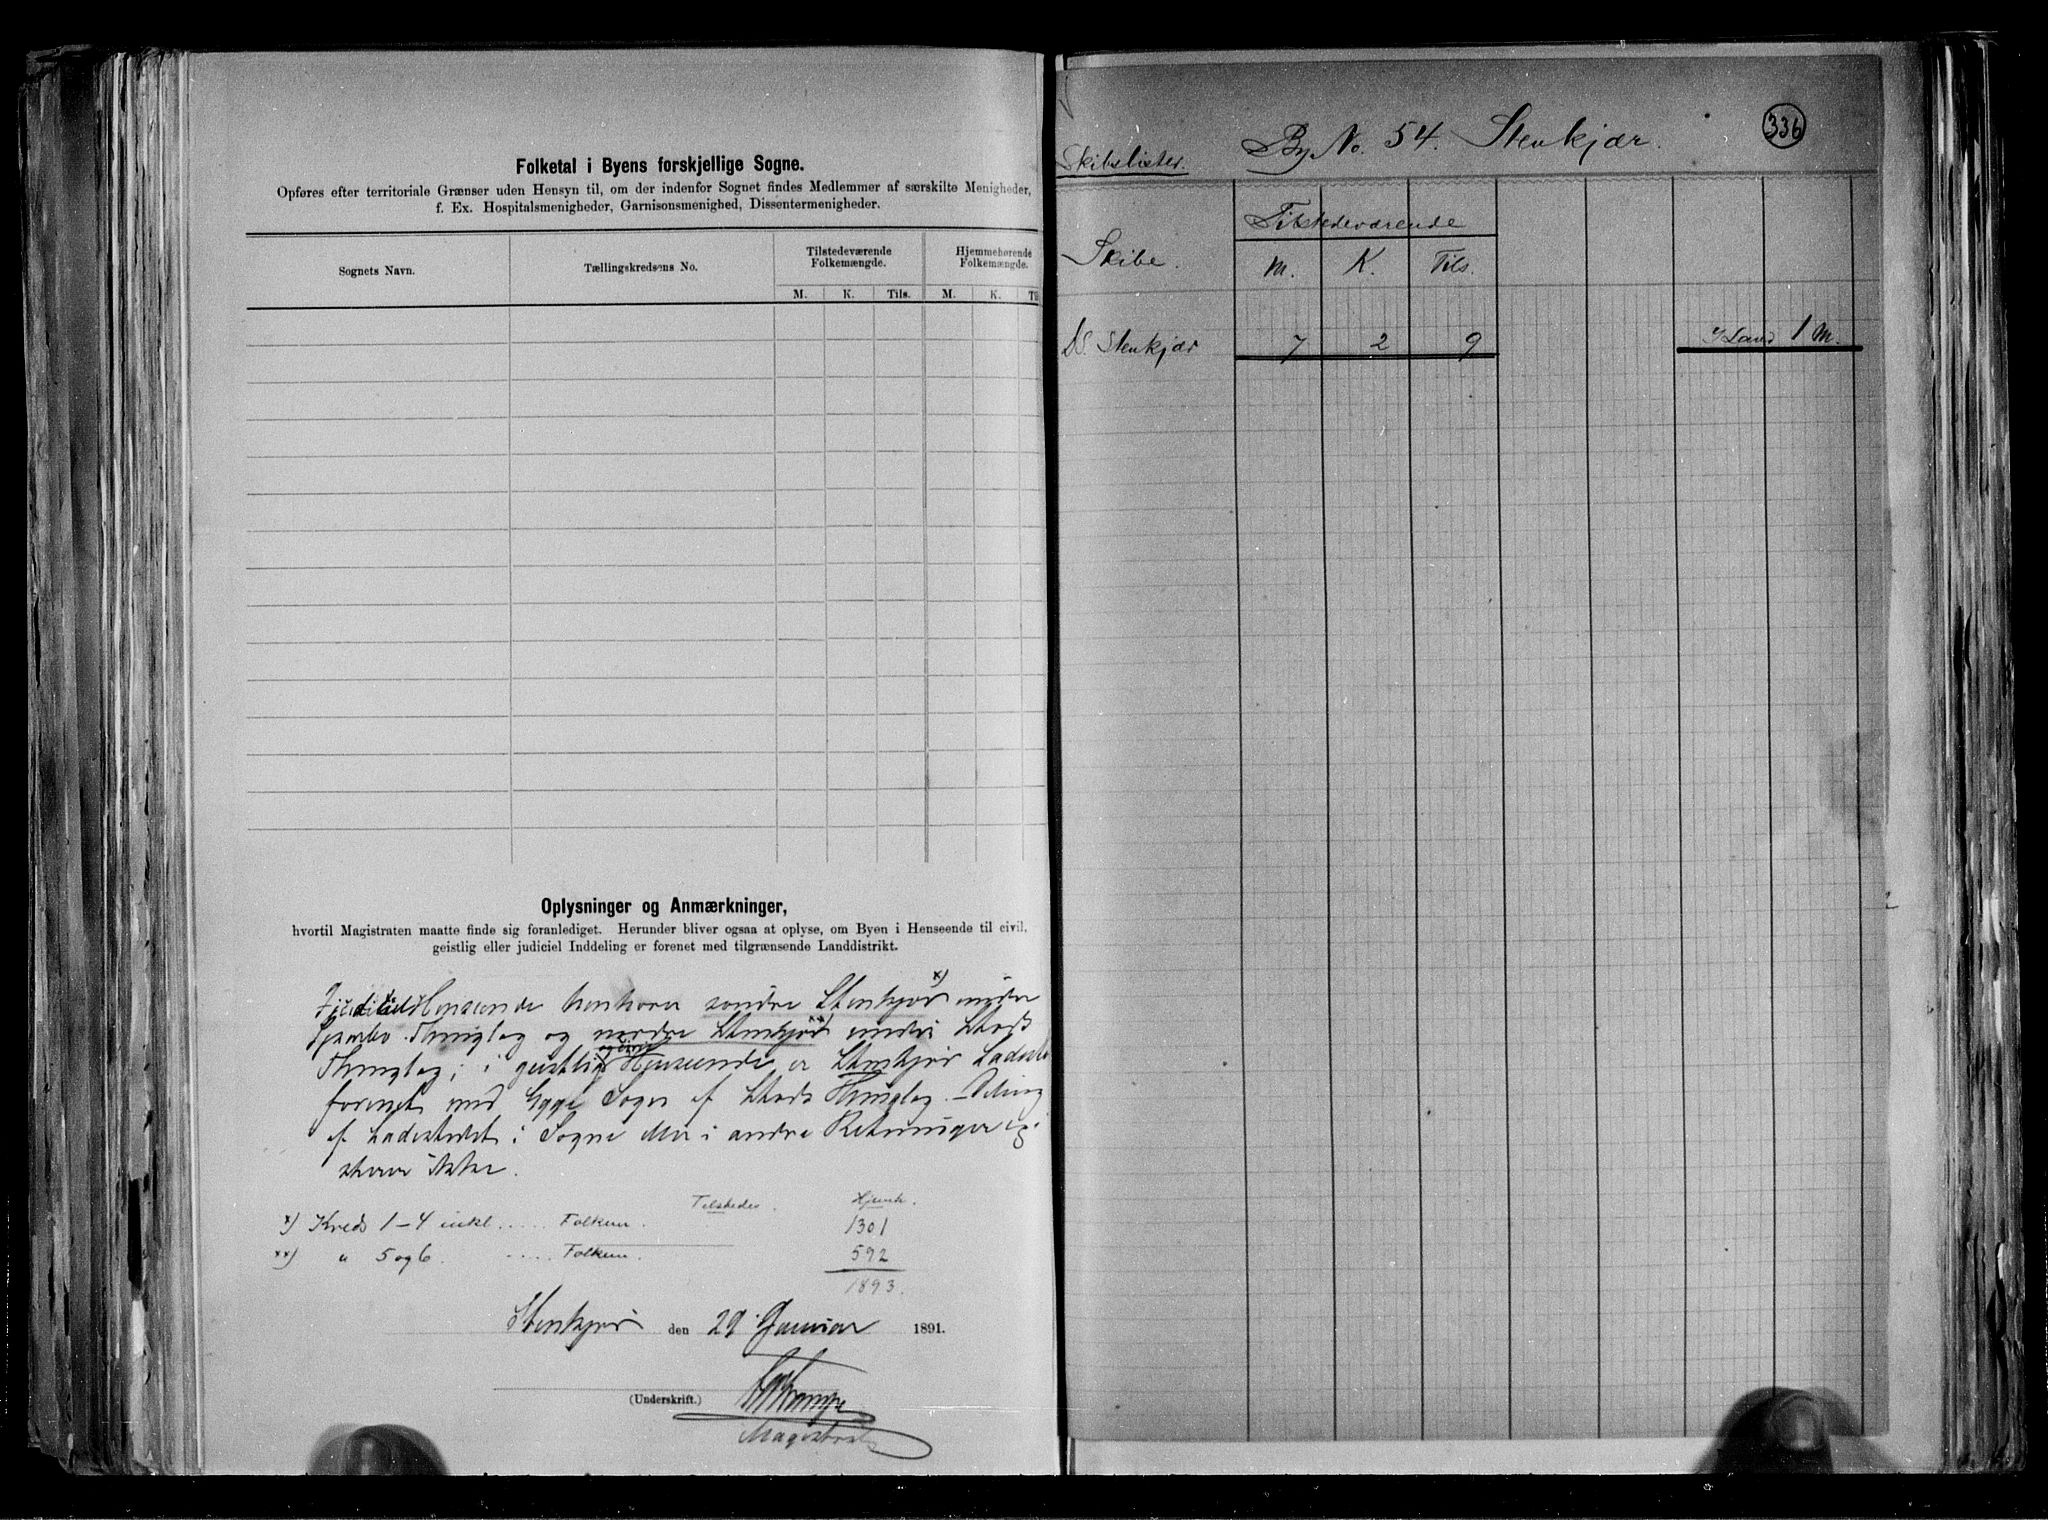 Folketal i Byens forskjellige Sogne.
Opføres efter territoriale Grænser uden Hensyn til, om der indenfor Sognet findes Medlemmer af særskilte Menigheder,
f. Ex. Hospitalsmenigheder, Garnisonsmenighed, Dissentermenigheder.
Sognets Navn. Tællingskredsens No. Tilstedeværende Folkemængde. Hjemmehørende Folkemængde.
M. K. Tils. M. K. Til
Oplysninger og Anmærkninger,
hvortil Magistraten maatte finde sig foranlediget. Herunder bliver ogsaa at oplyse, om Byen i Henseende til civil,
geistlig eller judiciel Inddeling er forenet med tilgrænsende Landdistrikt.
Henseende henhører søndre Stenkjær x) under
Sparbo Thinglag og nordre Stenkjær xx) under Stods
Thinglag; i geistlig Henseende er Stenkjær Ladested
forenet med Egge Sogn af Stods Thinglag. Deling
af Ladestedet i Sogne eller i andre Retninger
ikke.
Tilstedev. Hjemh.
x) Kreds 1-4 inkl. ..... Folkem. 1301
xx) " 5 og 6. ..... Folkem. 592
1893.
Stenkjær den 29 Januar 1891.
(Underskrift.)
Magistrat
336
By No. 54. Stenkjær.
Skibslister.
Tilstedeværende
Skibe. M. K. Tils.
DS. Stenkjær 7 2 9 I Land 1 M.